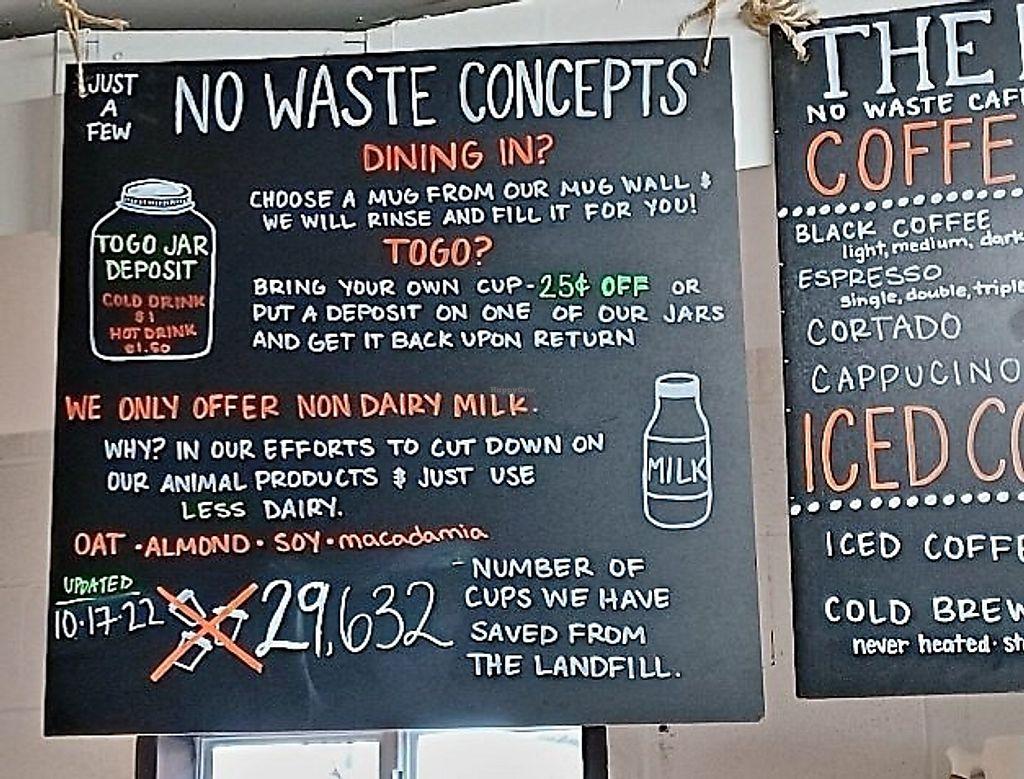 JUST
A
FEW
NO WASTE CONCEPTS
DINING IN?
CHOOSE A MUG FROM OUR MUG WALL &
WE WILL RINSE AND FILL IT FOR YOU!
TOGO?
BRING YOUR OWN CUP - 25¢ OFF OR
PUT A DEPOSIT ON ONE OF OUR JARS
AND GET IT BACK UPON RETURN
TOGO JAR
DEPOSIT
COLD DRINK
$1
HOT DRINK
$1.50
WE ONLY OFFER NON DAIRY MILK.
WHY? IN OUR EFFORTS TO CUT DOWN ON
OUR ANIMAL PRODUCTS & JUST USE
LESS DAIRY.
MILK
OAT • ALMOND • SOY • macadamia
UPDATED
10•17•22
29,632
- NUMBER OF
CUPS WE HAVE
SAVED FROM
THE LANDFILL.
THE
NO WASTE CAF
COFFE
BLACK COFFEE
light, medium, dark
ESPRESSO
single, double, triple
CORTADO
CAPPUCINO
ICED CO
ICED COFFE
COLD BREW
never heated • st
HappyCow